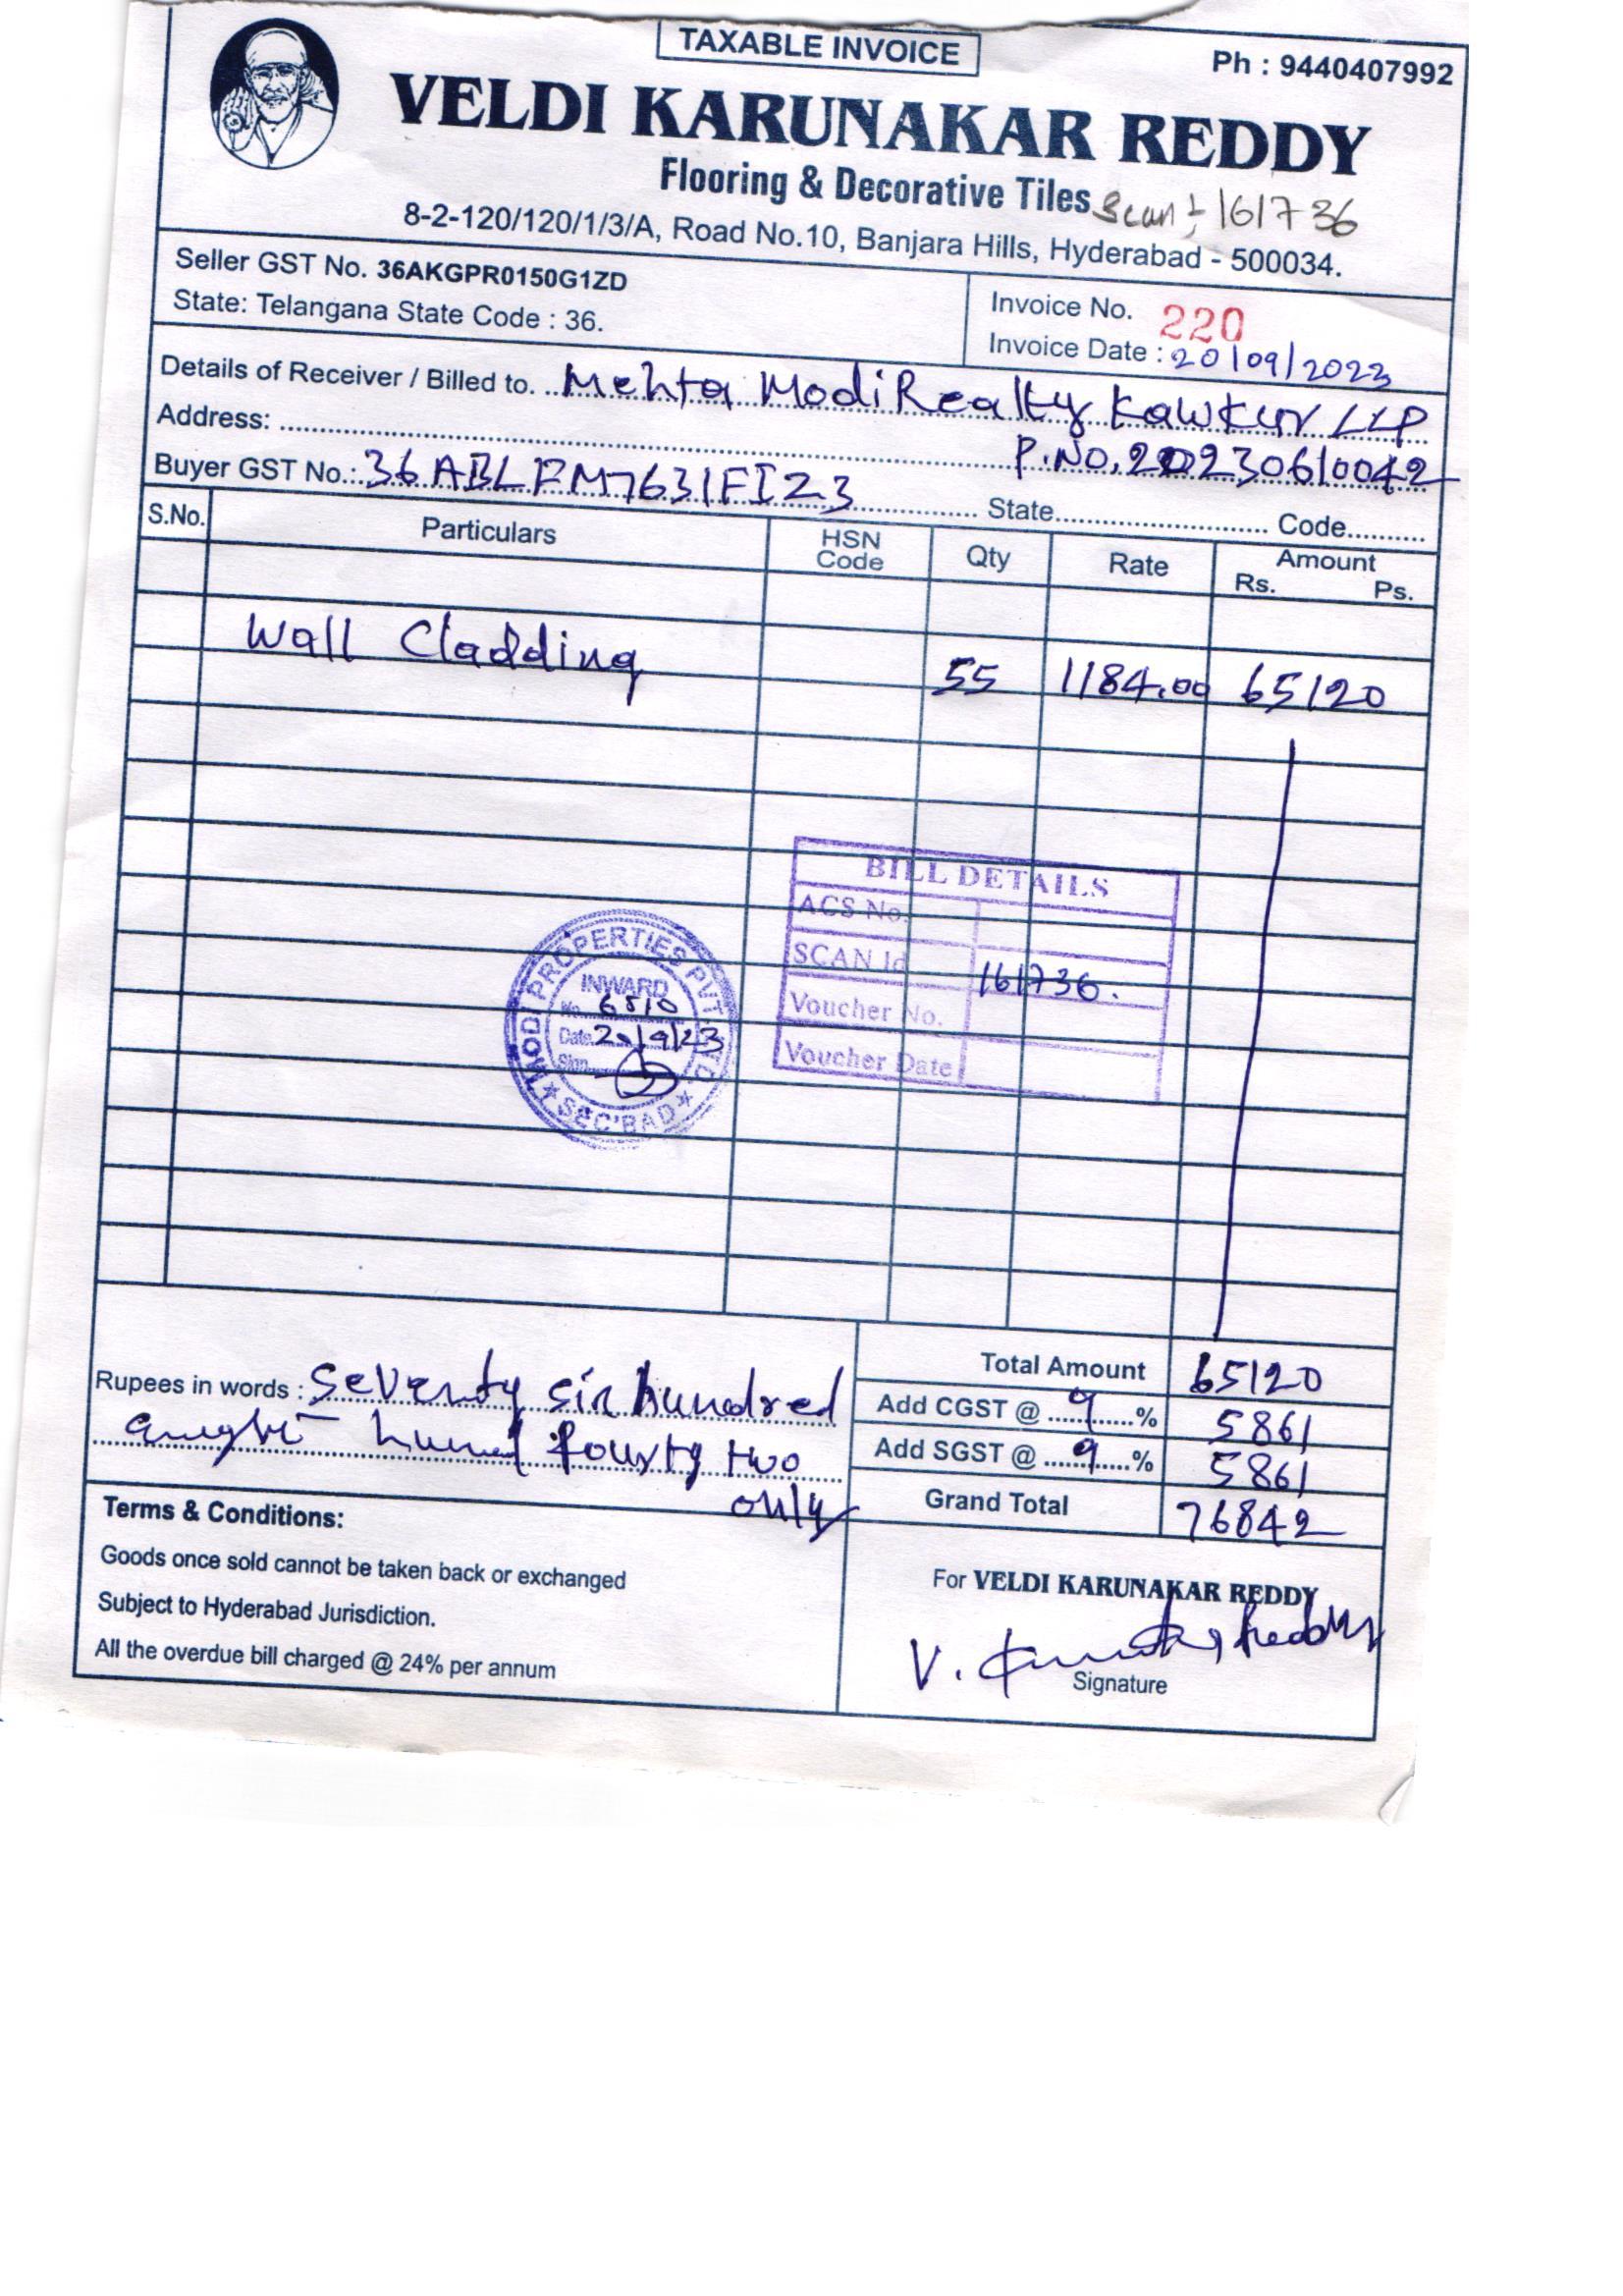 TAXABLE INVOICE
Ph : 9440407992
VELDI KARUNAKAR REDDY
Flooring & Decorative Tiles
Scan :- 161736
8-2-120/120/1/3/A, Road No.10, Banjara Hills, Hyderabad - 500034.
Seller GST No. 36AKGPR0150G1ZD
State: Telangana State Code : 36.
Invoice No. 220
Invoice Date : 20/09/2023
Details of Receiver / Billed to. Mehta Modi Realty Kawkur LLP
Address: P.No. 20230610042
Buyer GST No.: 36ABLFM7631F1Z3 State Code
S.No. Particulars HSN Code Qty Rate Amount Rs. Ps.
Wall Cladding 55 1184.00 65120
BILL DETAILS
ACS No.
SCAN Id 161736.
Voucher No.
Voucher Date
MODI PROPERTIES PVT. LTD.
INWARD
No. 6810
Date 20/9/23
Sign
SEC'BAD
Total Amount 65120
Rupees in words : Seventy six hundred
hund fourty two
only
Add CGST @ 9 % 5861
Add SGST @ 9 % 5861
Grand Total 76842
Terms & Conditions:
Goods once sold cannot be taken back or exchanged
Subject to Hyderabad Jurisdiction.
All the overdue bill charged @ 24% per annum
For VELDI KARUNAKAR REDDY
V. Reddy
Signature